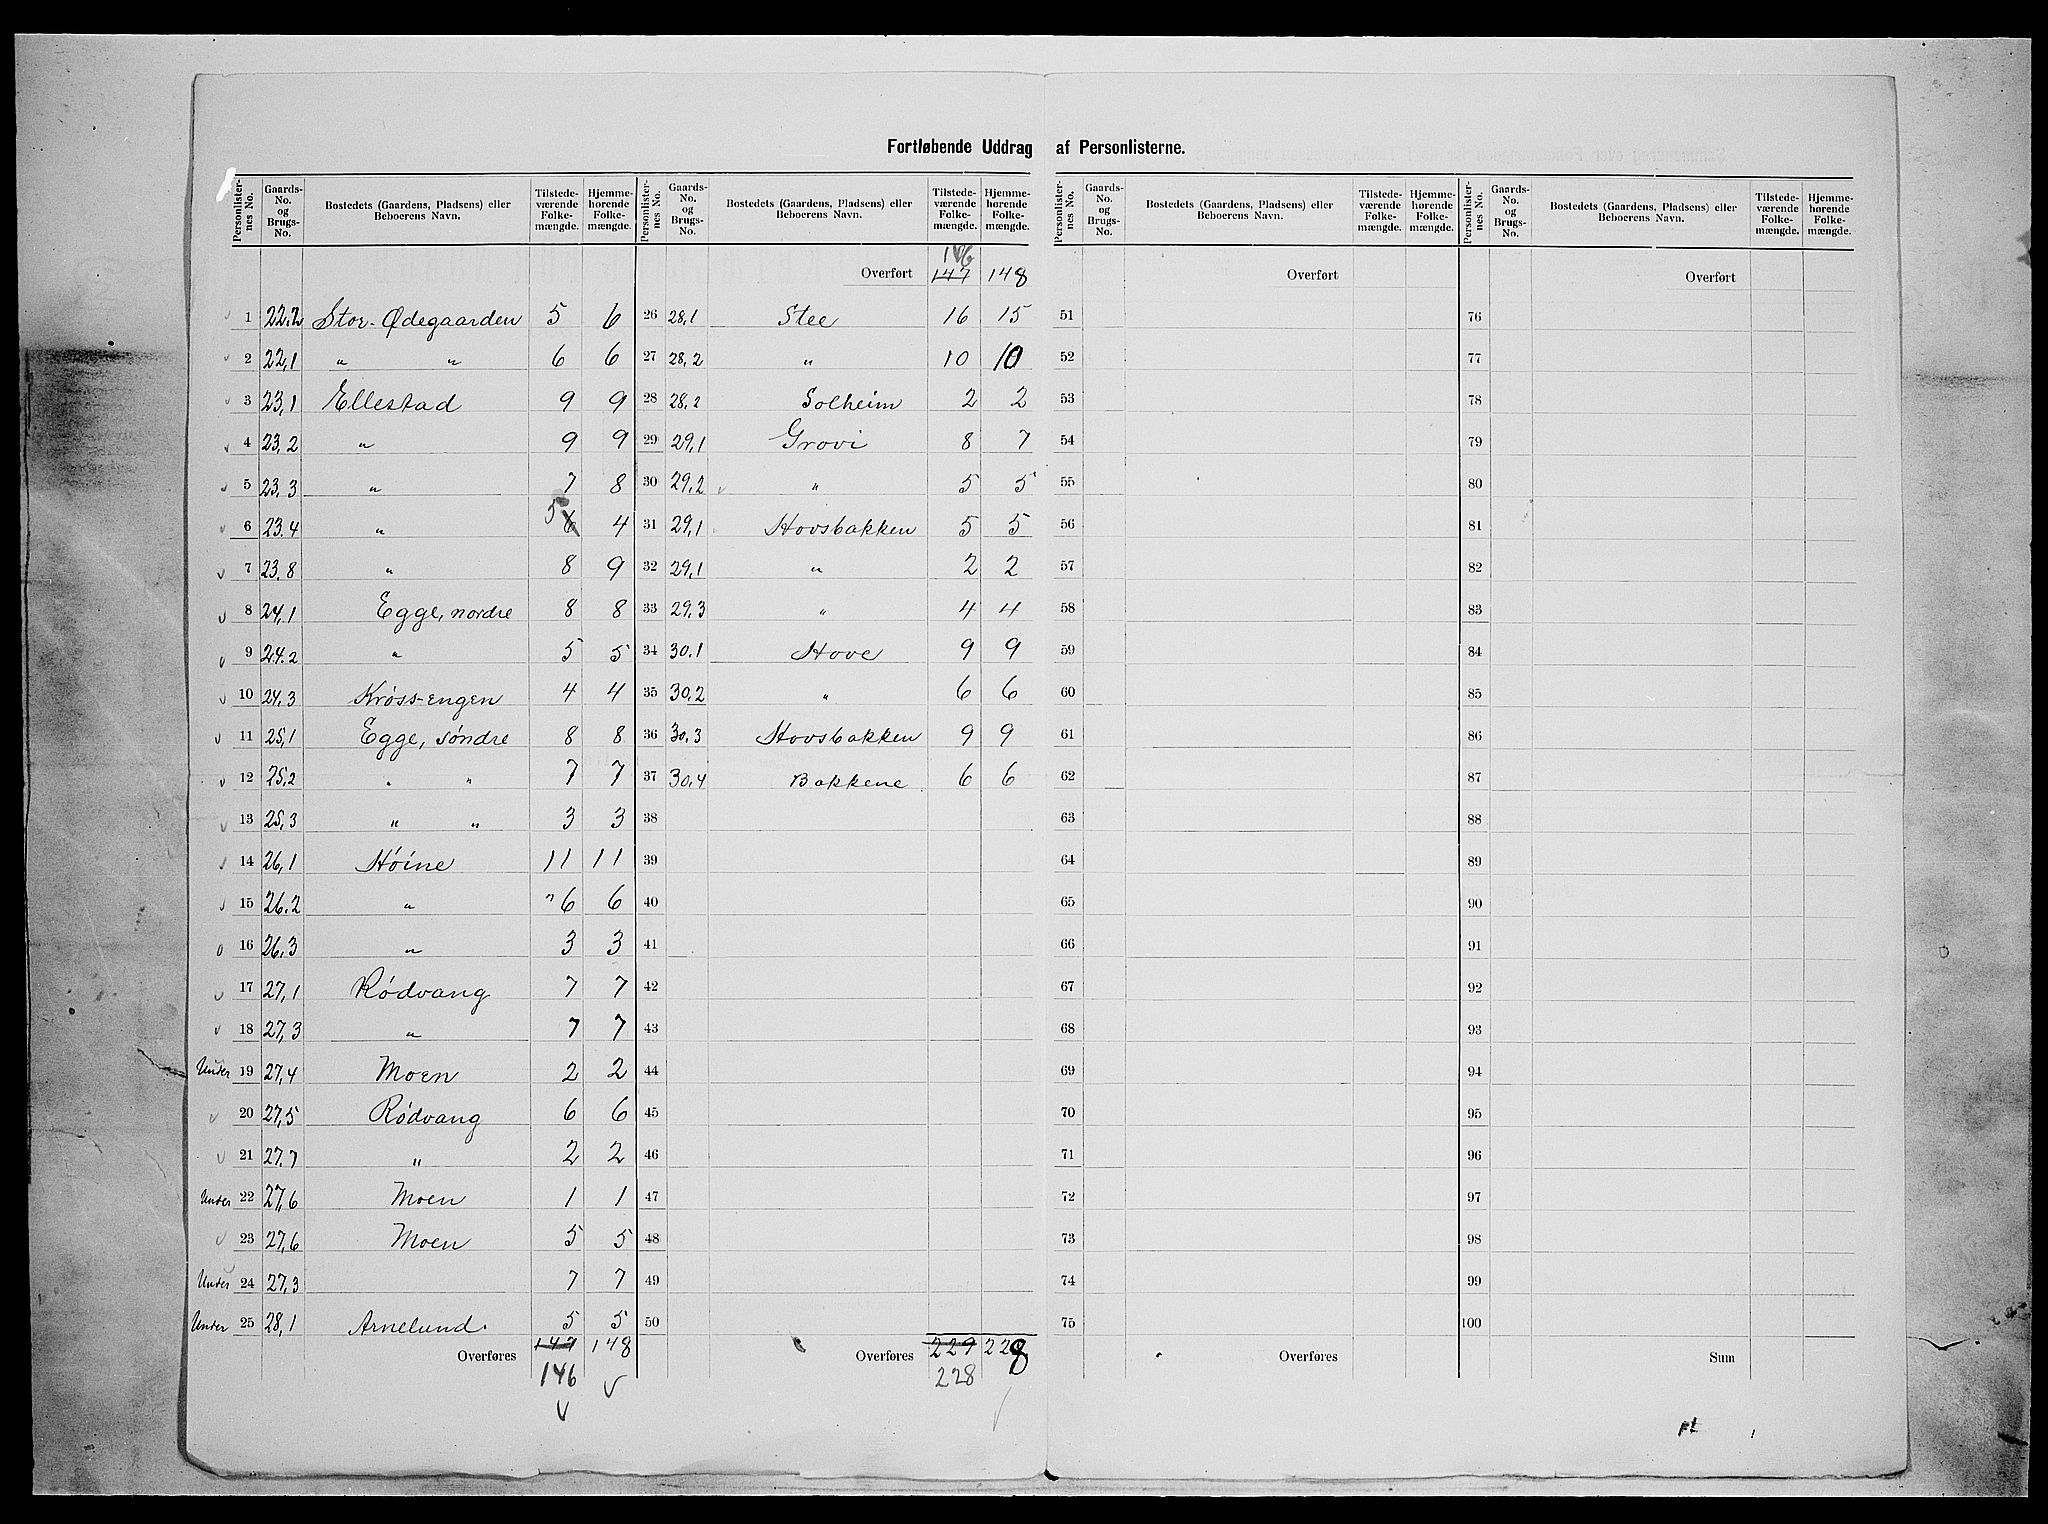 Fortløbende Uddrag af Personlisterne.
Personlisternes No. | Gaards-No. og Brugs-No. | Bostedets (Gaardens, Pladsens) eller Beboerens Navn. | Tilstedeværende Folkemængde. | Hjemmehørende Folkemængde.
1 22.2 Stor-Ødegaarden 5 6
2 22,1 " " 6 6
3 23,1 Ellestad 9 9
4 23,2 " 9 9
5 23.3 " 7 8
6 23.4 " 6 5 4
7 23.8 " 8 9
8 24,1 Egge, nordre 8 8
9 24.2 " 5 5
10 24,3 Krøss-engen 4 4
11 25,1 Egge, søndre 8 8
12 25,2 " " 7 7
13 25,3 " " 3 3
14 26,1 Høine 11 11
15 26.2 " " 6 6
16 26,3 " 3 3
17 27,1 Rødvang 7 7
18 27,3 " 7 7
Under 19 27,4 Moen 2 2
20 27,5 Rødvang 6 6
21 27.7 " 2 2
Under 22 27,6 Moen 1 1
23 27,6 Moen 5 5
Under 24 27,3 7 7
Under 25 28,1 Arnelund. 5 5
Overføres 147 148
146
Personlisternes No. | Gaards-No. og Brugs-No. | Bostedets (Gaardens, Pladsens) eller Beboerens Navn. | Tilstedeværende Folkemængde. | Hjemmehørende Folkemængde.
146
Overført 147 148
26 28,1 Stee 16 15
27 28,2 " 10 10
28 28,2 Solheim 2 2
29 29,1 Grovi 8 7
30 29,2 " 5 5
31 29,1 Hovsbakken 5 5
32 29,1 " 2 2
33 29,3 " 4 4
34 30.1 Hove 9 9
35 30.2 " 6 6
36 30.3 Hovsbakken 9 9
37 30,4 Bakkene 6 6
38
39
40
41
42
43
44
45
46
47
48
49
50
Overføres 229 228
228
Personlisternes No. | Gaards-No. og Brugs-No. | Bostedets (Gaardens, Pladsens) eller Beboerens Navn. | Tilstedeværende Folkemængde. | Hjemmehørende Folkemængde.
Overført
51
52
53
54
55
56
57
58
59
60
61
62
63
64
65
66
67
68
69
70
71
72
73
74
75
Overføres
Personlisternes No. | Gaards-No. og Brugs-No. | Bostedets (Gaardens, Pladsens) eller Beboerens Navn. | Tilstedeværende Folkemængde. | Hjemmehørende Folkemængde.
Overført
76
77
78
79
80
81
82
83
84
85
86
87
88
89
90
91
92
93
94
95
96
97
98
99
100
Sum